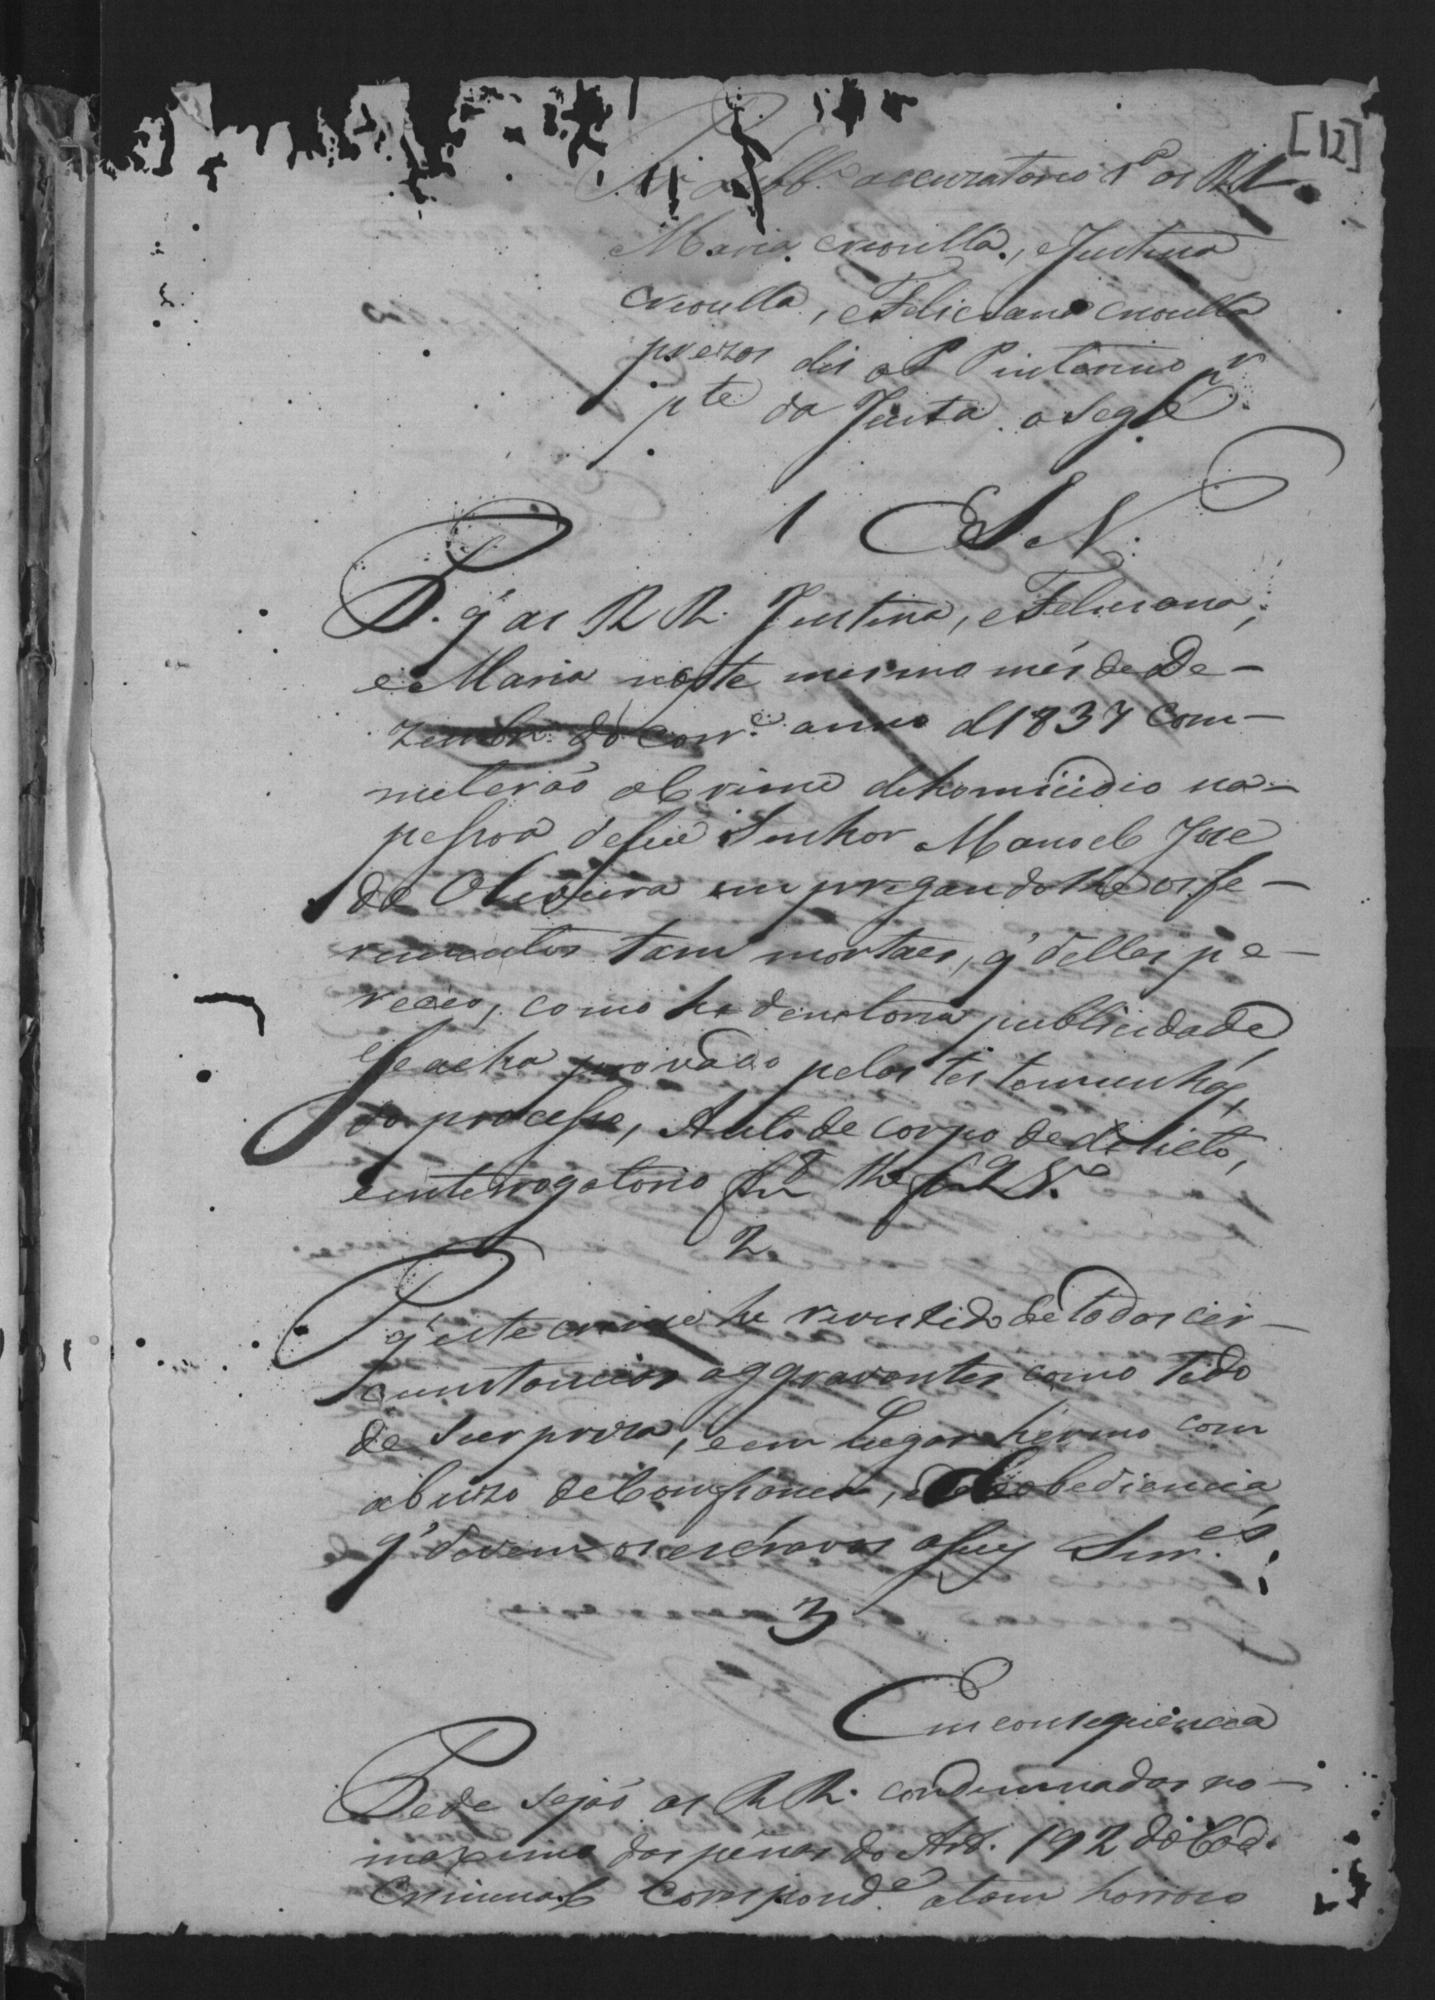 [12]
Libb.º accuzatorio Cª as RR
Maria crioulla, e Justina
crioulla, e Feliciana crioulla
prezas diz o P P interino
pte da Justa o Segte
1 E S N.
P. q' as RR. Justina, e Feliciana,
e Maria neste mesmo més de De-
zembr.º do corr.e anno d 1837 com-
meterão o Crime de homicidio na
pessoa de seu Senhor Manoel Jose
de Oliveira empregandolhe os fe-
rimentos tam mortaes, q' delles pe-
receo, como he de notoria publicidade
e se acha provado pelas testemunhas
do processo, Auto de corpo de delicto,
e interrogatorio
2
P. q' este crime he revestido de todas cir-
cunstancias aggravantes como tido
de surpreza, e em lugar hermo com
abuzo de Confiança, e obediencia
q' devem os escravos a seus Snr.es;
3
Em consequencia
Pede sejão as RR. condemnadas no
maximo das penas do Art. 192 do Cod.
Criminal Correspond.e a tam horroro